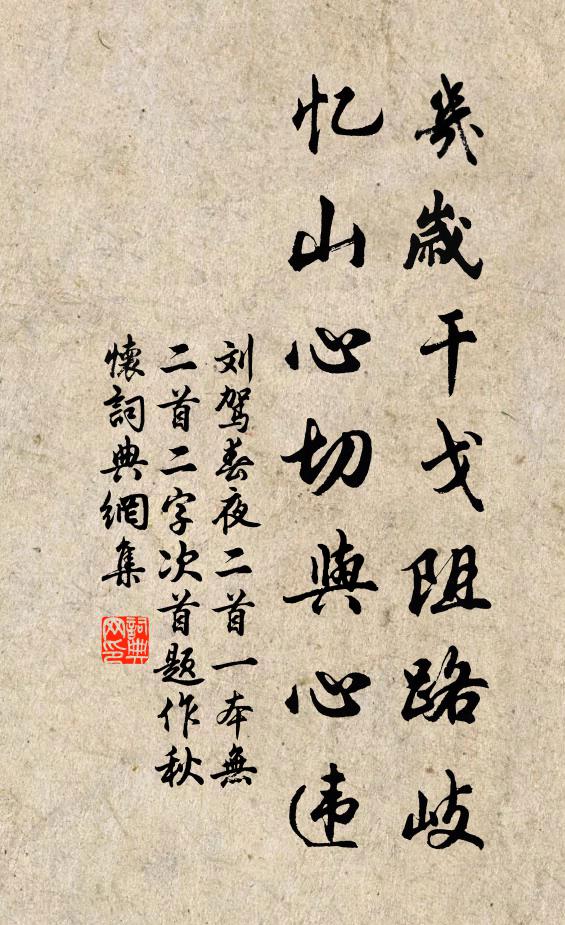 幾歲干戈阻路岐
忆山心切與心违
刘驾春夜二首一本無
二首二字次首题作秋
懷詞典網集
詞典
网印